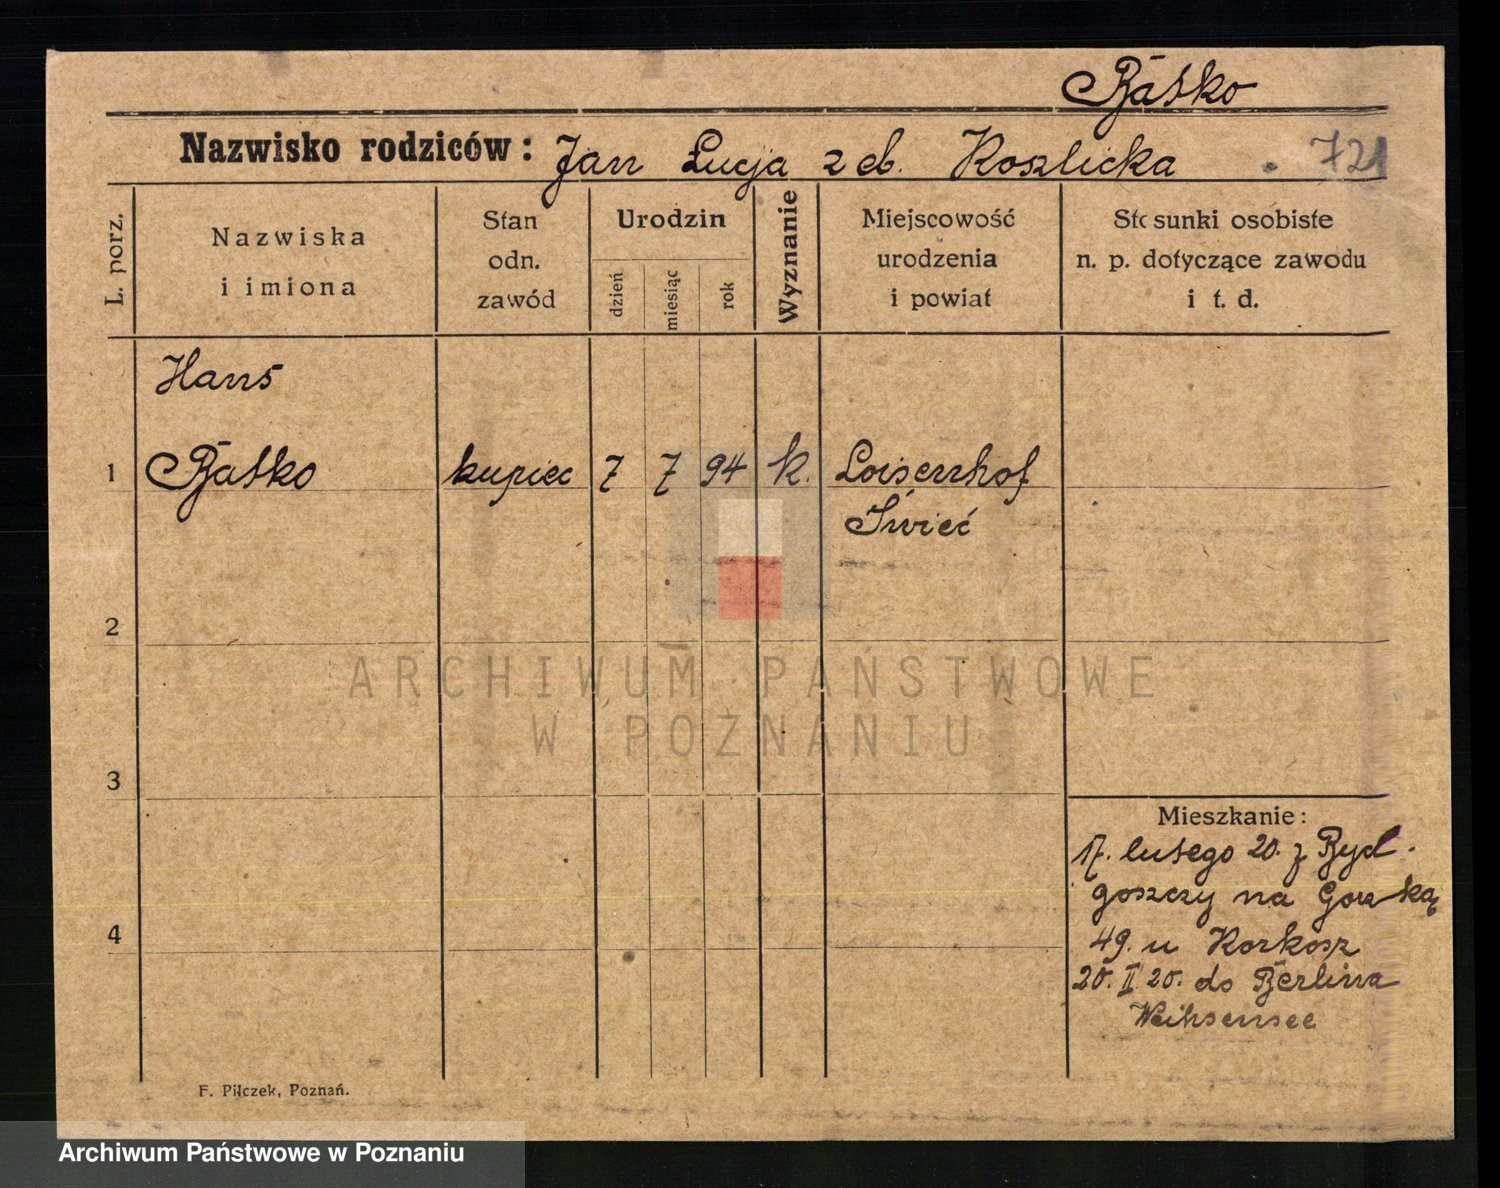 Batko
Nazwisko rodziców: Jan Lucja z cb. Koszlicka 721
L. porz.
Nazwiska
i imiona
Stan
odn.
zawód
Urodzin
dzień
miesiąc
rok
Wyznanie
Miejscowość
urodzenia
i powiat
Stosunki osobiste
n. p. dotyczące zawodu
i t. d.
Hans
1 Batko kupiec 7 7 94 k. Loiserrhof
Świeć
2
ARCHIWUM PAŃSTWOWE
W POZNANIU
3
Mieszkanie:
17. lutego 20. z Byd-
goszczy na
4
49. u Korkosz
20. II 20. do Berlina
Weihsensee
F. Pilczek, Poznań.
Archiwum Państwowe w Poznaniu